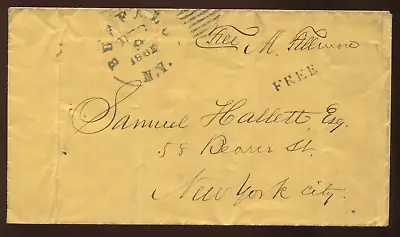 BUFFALO N.Y.
DEC
1862
Free M. Fillmore
FREE
Samuel Hallett, Esq.
58 Beaver St.
New York City.